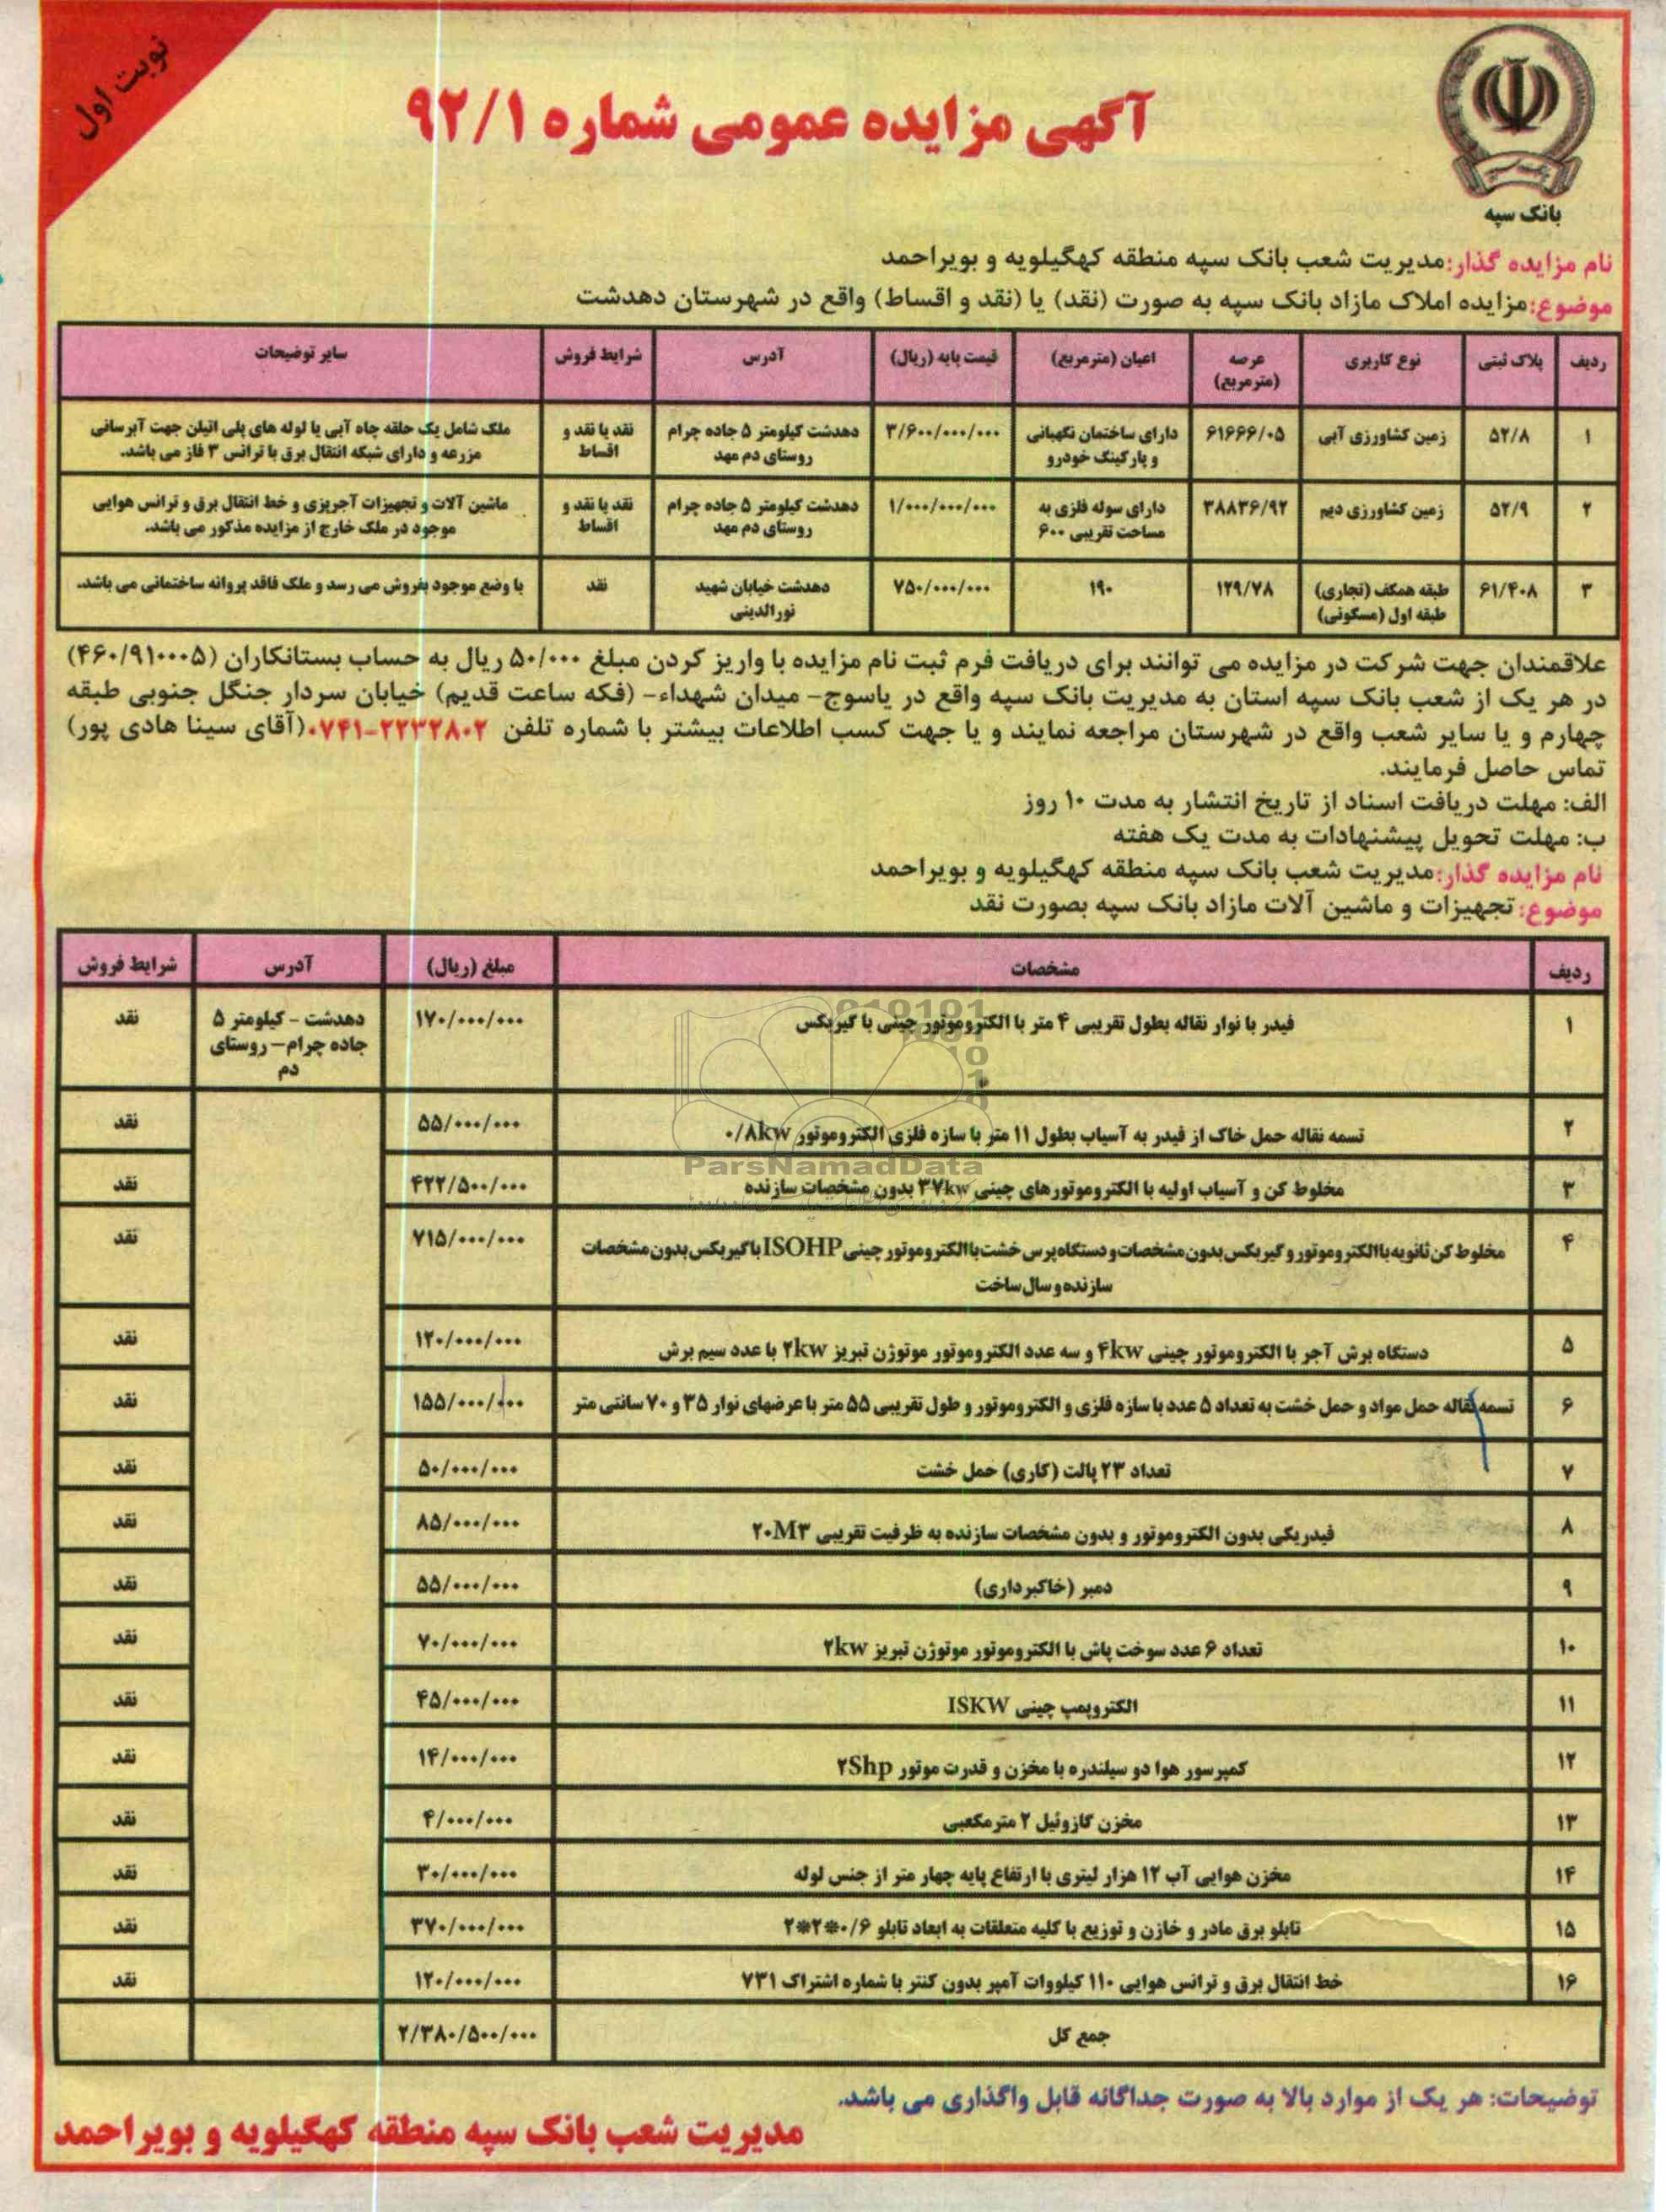 نوبت اول
آگهی مزایده عمومی شماره ۹۲/۱
بانک سپه
نام مزایده گذار:مدیریت شعب بانک سپه منطقه کهگیلویه و بویراحمد
موضوع:مزایده املاک مازاد بانک سپه به صورت (نقد) یا (نقد و اقساط) واقع در شهرستان دهدشت
ردیف پلاک ثبتی نوع کاربری عرصه (مترمربع) اعیان (مترمربع) قیمت پایه (ریال) آدرس شرایط فروش سایر توضیحات
۱ ۵۲/۸ زمین کشاورزی آبی ۶۱۶۶۶/۰۵ دارای ساختمان نگهبانی و پارکینگ خودرو ۳/۶۰۰/۰۰۰/۰۰۰ دهدشت کیلومتر ۵ جاده چرام روستای دم مهد نقد یا نقد و اقساط ملک شامل یک حلقه چاه آبی با لوله های پلی اتیلن جهت آبرسانی مزرعه و دارای شبکه انتقال برق با ترانس ۳ فاز می باشد.
۲ ۵۲/۹ زمین کشاورزی دیم ۳۸۸۳۶/۹۲ دارای سوله فلزی به مساحت تقریبی ۶۰۰ ۱/۰۰۰/۰۰۰/۰۰۰ دهدشت کیلومتر ۵ جاده چرام روستای دم مهد نقد یا نقد و اقساط ماشین آلات و تجهیزات آجرپزی و خط انتقال برق و ترانس هوایی موجود در ملک خارج از مزایده مذکور می باشد.
۳ ۶۱/۴۰۸ طبقه همکف (تجاری) طبقه اول (مسکونی) ۱۲۹/۷۸ ۱۹۰ ۷۵۰/۰۰۰/۰۰۰ دهدشت خیابان شهید نورالدینی نقد با وضع موجود بفروش می رسد و ملک فاقد پروانه ساختمانی می باشد.
علاقمندان جهت شرکت در مزایده می توانند برای دریافت فرم ثبت نام مزایده با واریز کردن مبلغ ۵۰/۰۰۰ ریال به حساب بستانکاران (۴۶۰/۹۱۰۰۰۵)
در هر یک از شعب بانک سپه استان به مدیریت بانک سپه واقع در یاسوج- میدان شهداء- (فکه ساعت قدیم) خیابان سردار جنگل جنوبی طبقه
چهارم و یا سایر شعب واقع در شهرستان مراجعه نمایند و یا جهت کسب اطلاعات بیشتر با شماره تلفن ۲۲۳۲۸۰۲-۰۷۴۱(آقای سینا هادی پور)
تماس حاصل فرمایند.
الف: مهلت دریافت اسناد از تاریخ انتشار به مدت ۱۰ روز
ب: مهلت تحویل پیشنهادات به مدت یک هفته
نام مزایده گذار:مدیریت شعب بانک سپه منطقه کهگیلویه و بویراحمد
موضوع: تجهیزات و ماشین آلات مازاد بانک سپه بصورت نقد
ردیف مشخصات مبلغ (ریال) آدرس شرایط فروش
۱ فیدر با نوار نقاله بطول تقریبی ۴ متر با الکتروموتور چینی با گیربکس ۱۷۰/۰۰۰/۰۰۰ دهدشت - کیلومتر ۵ جاده چرام- روستای دم نقد
۲ تسمه نقاله حمل خاک از فیدر به آسیاب بطول ۱۱ متر با سازه فلزی الکتروموتور ۰/۸kw ۵۵/۰۰۰/۰۰۰ نقد
ParsNamadData
۳ مخلوط کن و آسیاب اولیه با الکتروموتورهای چینی ۳۷kw بدون مشخصات سازنده ۴۲۲/۵۰۰/۰۰۰ نقد
۴ مخلوط کن ثانویه با الکتروموتور و گیربکس بدون مشخصات و دستگاه پرس خشت با الکتروموتور چینی ISOHP با گیربکس بدون مشخصات سازنده و سال ساخت ۷۱۵/۰۰۰/۰۰۰ نقد
۵ دستگاه برش آجر با الکتروموتور چینی ۴kw و سه عدد الکتروموتور موتوژن تبریز ۲kw با عدد سیم برش ۱۲۰/۰۰۰/۰۰۰ نقد
۶ تسمه نقاله حمل مواد و حمل خشت به تعداد ۵ عدد با سازه فلزی و الکتروموتور و طول تقریبی ۵۵ متر با عرضهای نوار ۳۵ و ۷۰ سانتی متر ۱۵۵/۰۰۰/۰۰۰ نقد
۷ تعداد ۲۳ پالت (گاری) حمل خشت ۵۰/۰۰۰/۰۰۰ نقد
۸ فیدریکی بدون الکتروموتور و بدون مشخصات سازنده به ظرفیت تقریبی ۲۰M۳ ۸۵/۰۰۰/۰۰۰ نقد
۹ دمپر (خاکبرداری) ۵۵/۰۰۰/۰۰۰ نقد
۱۰ تعداد ۶ عدد سوخت پاش با الکتروموتور موتوژن تبریز ۲kw ۷۰/۰۰۰/۰۰۰ نقد
۱۱ الکتروپمپ چینی ISKW ۴۵/۰۰۰/۰۰۰ نقد
۱۲ کمپرسور هوا دو سیلندره با مخزن و قدرت موتور ۲Shp ۱۴/۰۰۰/۰۰۰ نقد
۱۳ مخزن گازوئیل ۲ مترمکعبی ۴/۰۰۰/۰۰۰ نقد
۱۴ مخزن هوایی آب ۱۲ هزار لیتری با ارتفاع پایه چهار متر از جنس لوله ۳۰/۰۰۰/۰۰۰ نقد
۱۵ تابلو برق مادر و خازن و توزیع با کلیه متعلقات به ابعاد تابلو ۰/۶*۲*۲ ۳۷۰/۰۰۰/۰۰۰ نقد
۱۶ خط انتقال برق و ترانس هوایی ۱۱۰ کیلووات آمپر بدون کنتر با شماره اشتراک ۷۳۱ ۱۲۰/۰۰۰/۰۰۰ نقد
جمع کل ۲/۳۸۰/۵۰۰/۰۰۰
توضیحات: هر یک از موارد بالا به صورت جداگانه قابل واگذاری می باشد.
مدیریت شعب بانک سپه منطقه کهگیلویه و بویراحمد